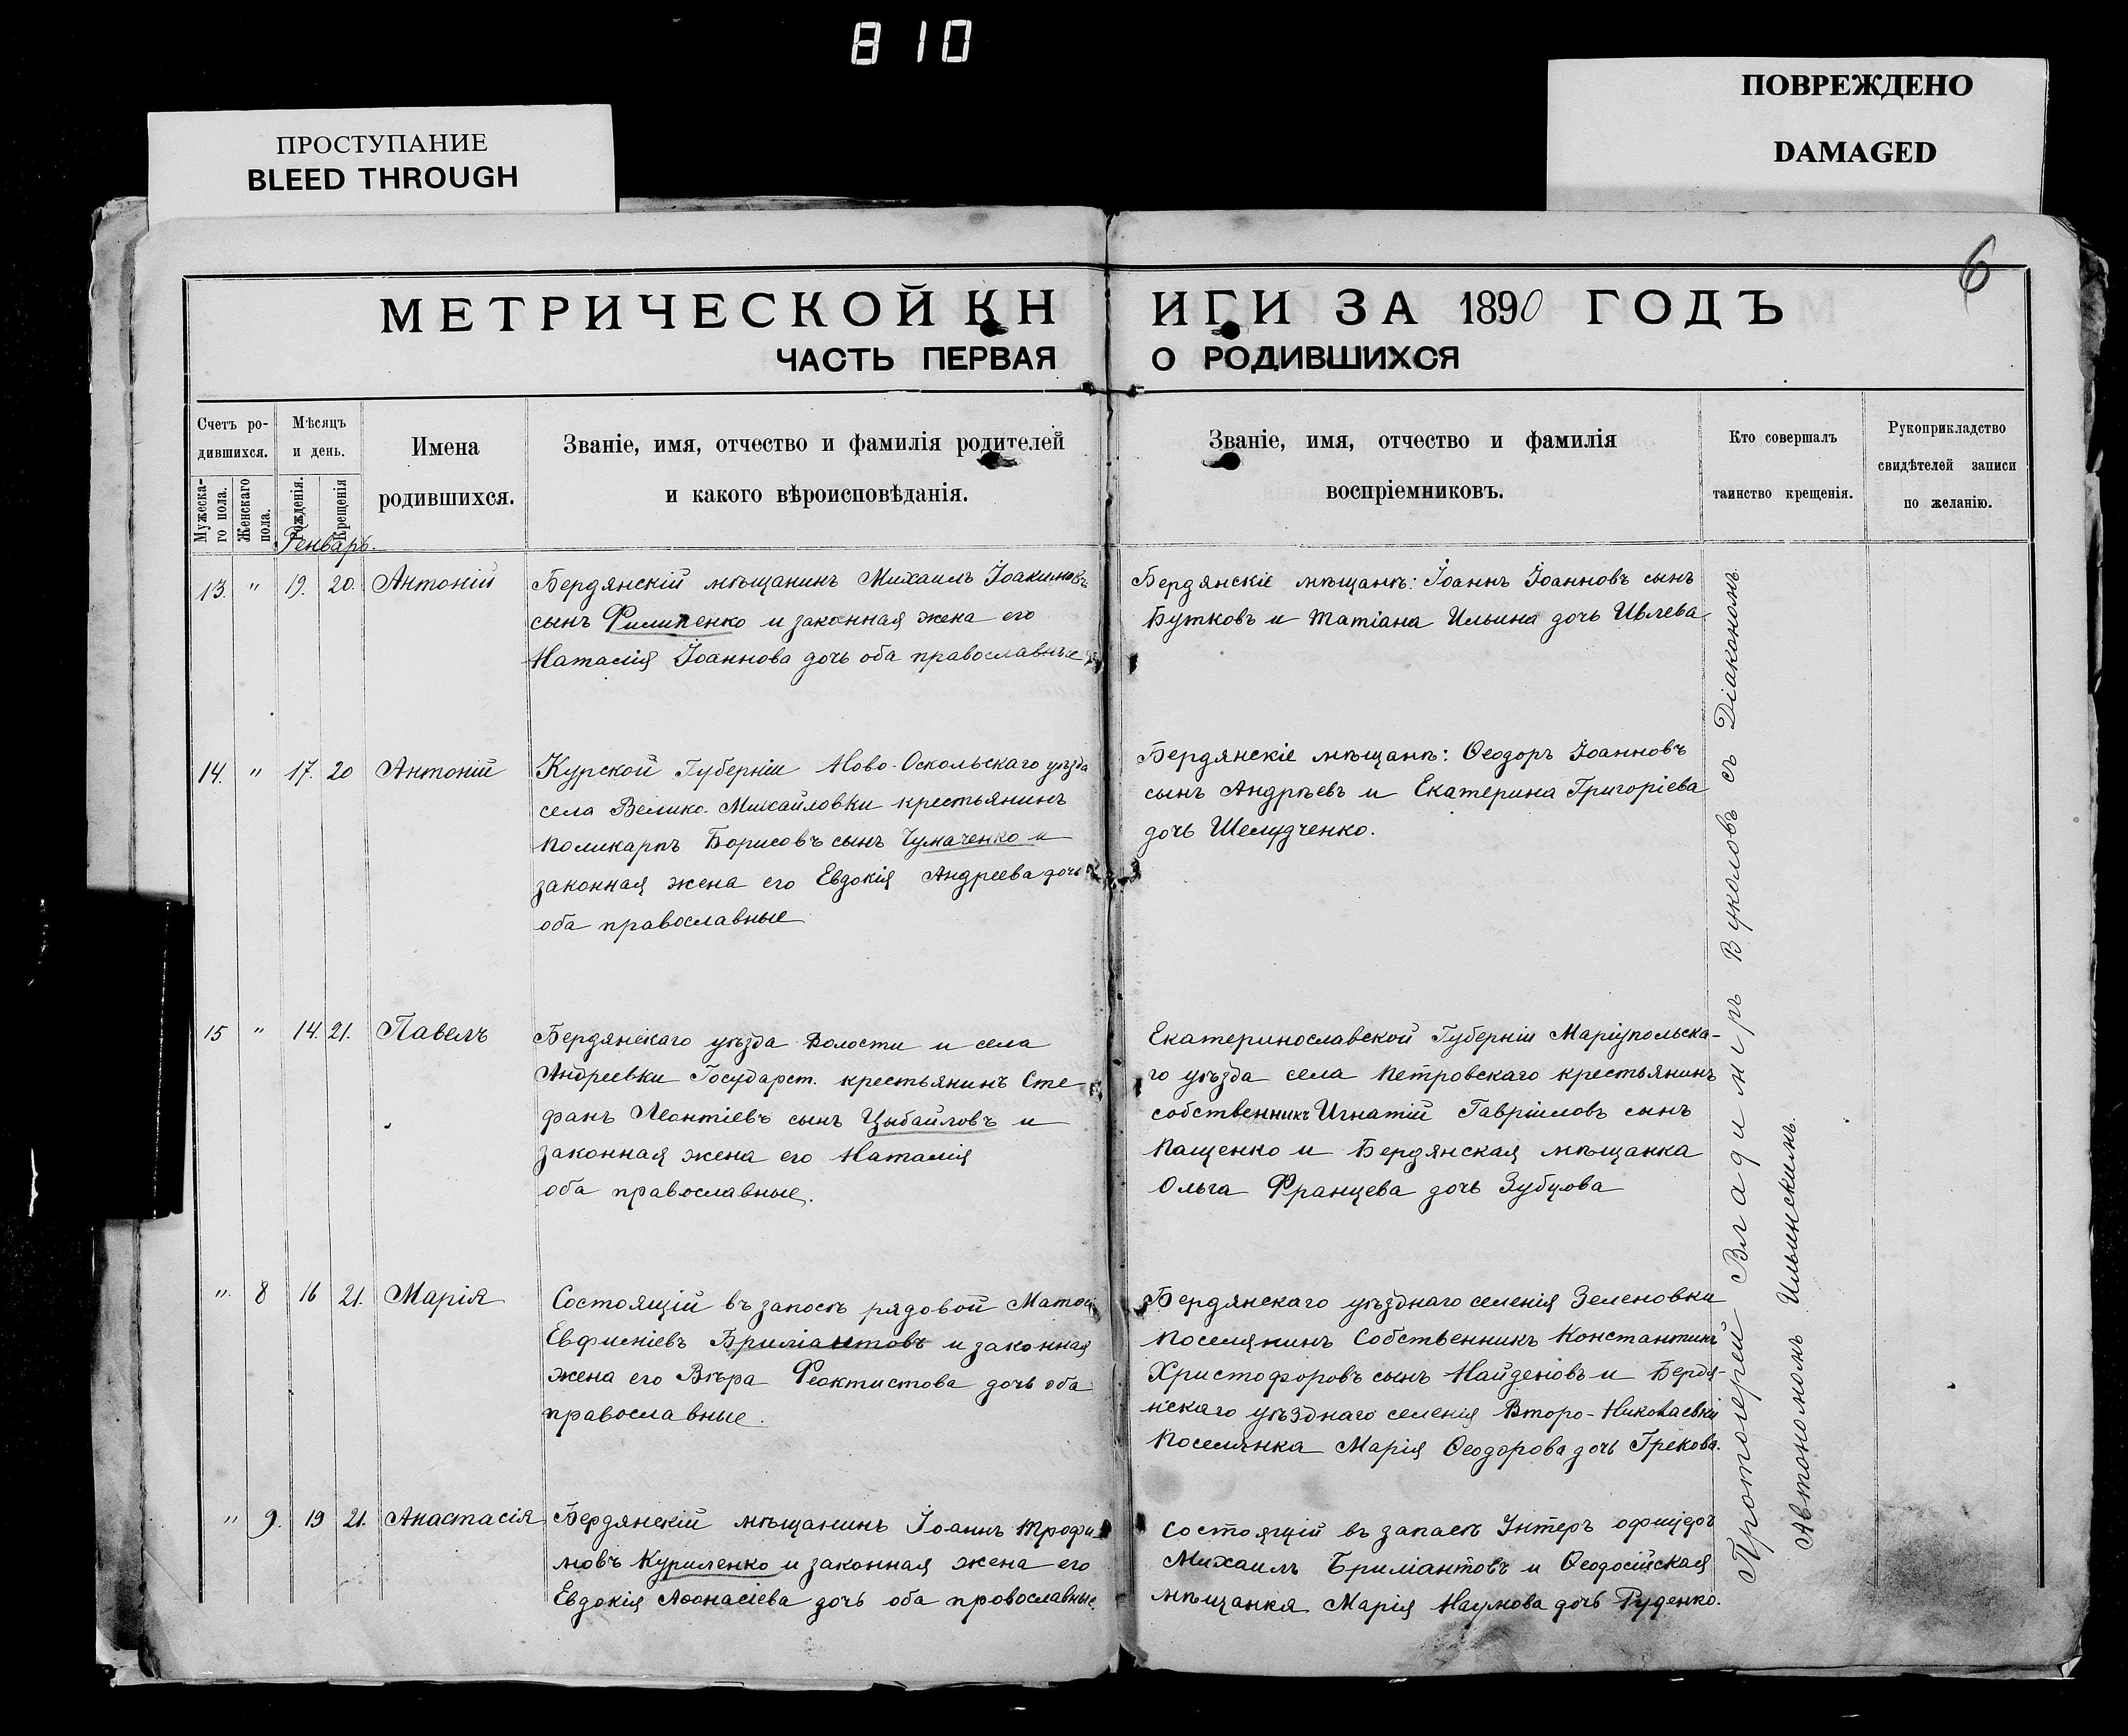 810
ПРОСТУПАНИЕ
BLEED THROUGH
ПОВРЕЖДЕНО
DAMAGED
6
МЕТРИЧЕСКОЙ КНИГИ ЗА 1890 ГОДЪ
ЧАСТЬ ПЕРВАЯ О РОДИВШИХСЯ
Счетъ ро-
дившихся.
Мужеска-
го пола.
Женскаго
пола.
Мѣсяцъ
и день.
Рожденія.
Крещенія
Имена
родившихся.
Званіе, имя, отчество и фамилія родителей
и какого вѣроисповѣданія.
Званіе, имя, отчество и фамилія
воспріемниковъ.
Кто совершалъ
таинство крещенія.
Рукоприкладство
свидѣтелей записи
по желанію.
Генварь.
13. " 19. 20. Антоній
Бердянскій мѣщанинъ Михаилъ Іоакимовъ
сынъ Филипенко и законная жена его
Наталія Іоаннова дочь оба православные
Бердянскіе мѣщанѣ: Іоаннъ Іоанновъ сынъ
Бутковъ и Татіана Ильина дочь Ивлева.
14. " 17. 20 Антоній
Курской Губерніи Ново-Оскольскаго уѣзда
села Велико-Михайловки крестьянинъ
Поликарпъ Борисовъ сынъ Чумаченко и
законная жена его Евдокія Андреева дочь
оба православные
Бердянскіе мѣщанѣ: Ѳеодоръ Іоанновъ
сынъ Андрѣевъ и Екатерина Григоріева
дочь Шелудченко.
15 " 14. 21. Павелъ
Бердянскаго уѣзда Волости и села
Андреевки Государст. крестьянинъ Сте
фанъ Леонтіевъ сынъ Цыбайловъ и
законная жена его Наталія
оба православные.
Екатеринославской Губерніи Маріупольска-
го уѣзда села Петровскаго крестьянинъ
собственникъ Игнатій Гавріиловъ сынъ
Пащенко и Бердянская мѣщанка
Ольга Францева дочь Зубцова
" 8 16 21. Марія
Состоящій въ запосѣ рядовой
Евфиміевъ Бриліантовъ и законная
жена его Вѣра Феоктистова дочь оба
православные.
Бердянскаго уѣзднаго селенія Зеленовки
Поселянинъ Собственникъ Константинъ
Христофоровъ сынъ Найденовъ и Бердя-
нскаго уѣзднаго селенія Второ-Николаевки
Поселянка Марія Ѳеодорова дочь Грекова.
" 9. 19 21. Анастасія
Бердянскій мѣщанинъ Іоаннъ Трофи
мовъ Куриленко и законная жена его
Евдокія Аѳонасіева дочь оба провославные.
Состоящій въ запасѣ Унтеръ
Михаилъ Бриліантовъ и Ѳеодосійская
мѣщанка Марія Наумова дочь Руденко.
Протоіерей Владимиръ Вуколовъ съ Діакономъ
Автономомъ Ильинскимъ.